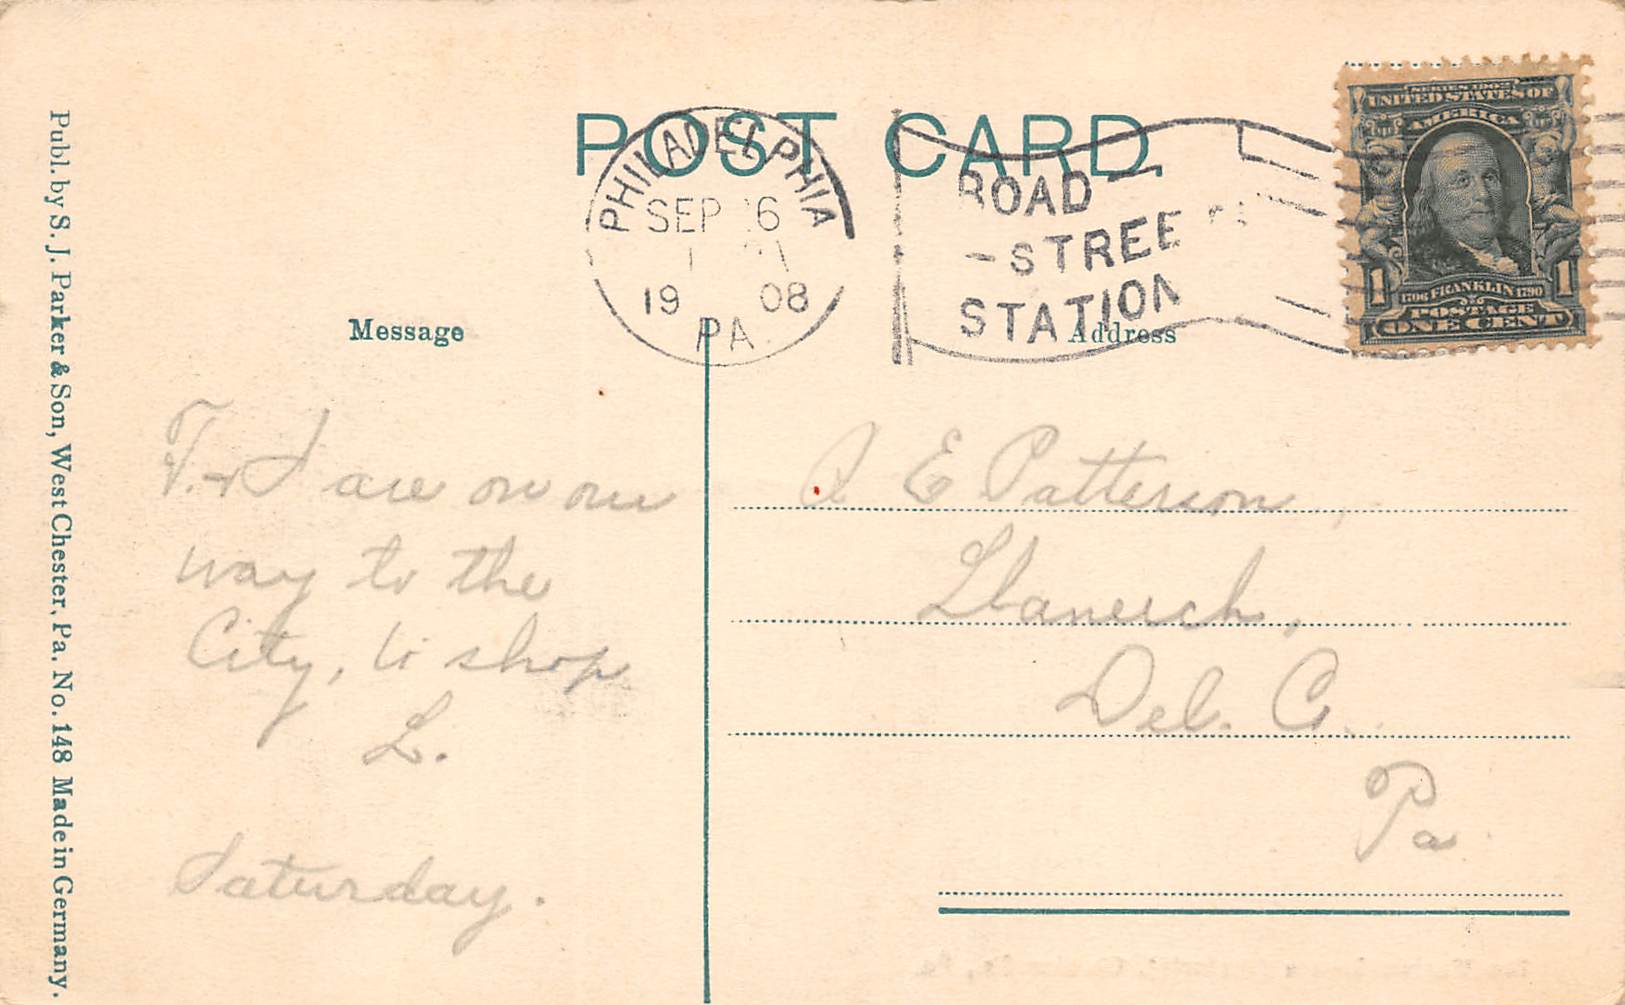 POST CARD.
PHILADELPHIA
SEP 26
1908
PA.
ROAD
-STREE
STATION
SERIES 1902
UNITED STATES OF
AMERICA
1 1
1706 FRANKLIN 1790
POSTAGE
ONE CENT
Message
Address
T. + I are on our
way to the
City, to shop
L.
Saturday.
E Patterson,
Llanerch,
Del. Co.
Pa.
Publ. by S. J. Parker & Son, West Chester, Pa. No. 148 Made in Germany.